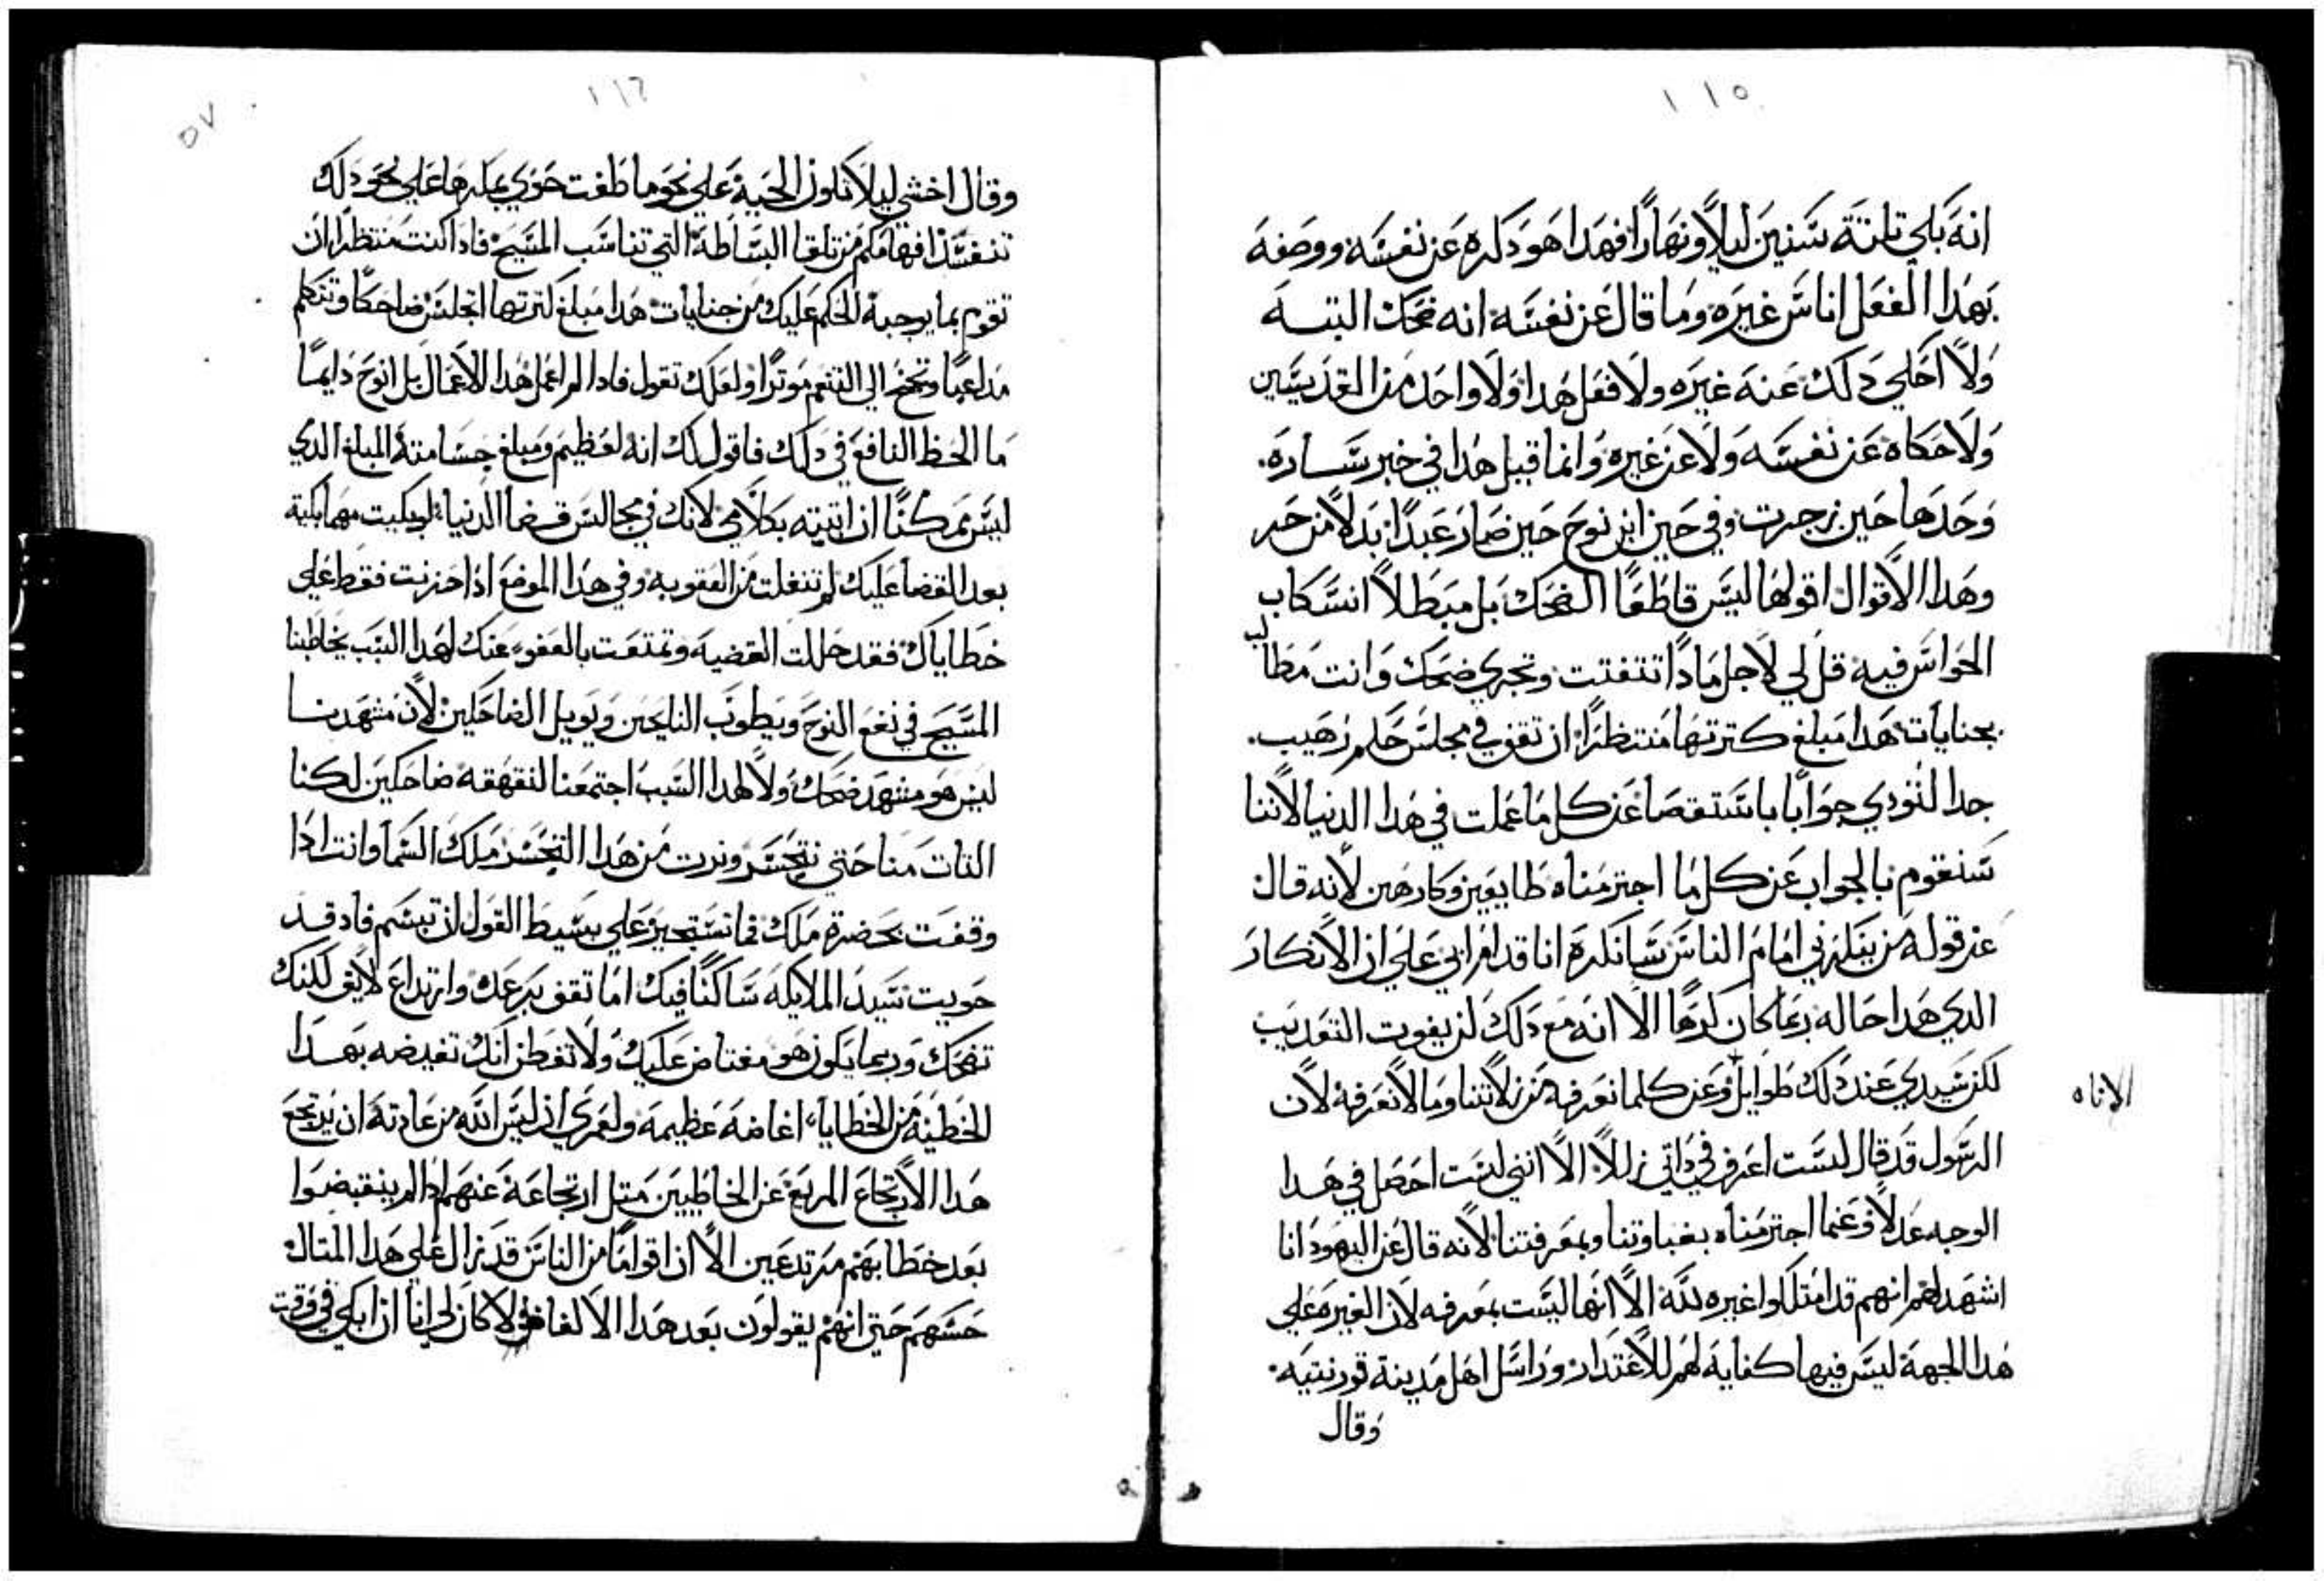 ١١٥
انه بكي تلتة سنين ليلاً ونهارًا فهدا هو دكره عن نفسه ووصفه
بهدا الفعل اناس غيره وما قال عن نفسه انه ضحك البتــه
ولا احكي دلك عنه غيره ولا فعل هدا ولا واحد من القديسين
ولا حكاه عن نفسه ولا عن غيره وانما قيل هدا في خبر ســاره
وحدها حين زجرت وفي حين ابن نوح حين صار عبدًا بدلاً من حر
وهدا الاقوال اقولها ليس قاطعًا الضحك بل مبطلاً انسكاب
الحواس فيه قل لي لاجل مادا تتفتت وتجري ضحك وانت مطالب
بجنايات هدا مبلغ كترتها منتظرًا ان تقف في مجلس حكم رهيب
جدا لتودي جوابًا باستقصا عن كل ما عملت في هدا الدنيا لاننا
سنقوم بالجواب عن كل ما اجترمناه طايعين وكارهين لانه قال
عن قوله من ينكرني امام الناس سانكره انا قدام ابي علي ان الانكار
الدي هدا حاله ربما كان كرهًا الا انه مع دلك لن يفوت التعديب
لكن سيدي عند دلك طوايل وعن كلما نعرفه من زلاتنا وما لا نعرفه لان
الاناه
الرسول قد قال لست اعرف في داتي زللاً الا انني لست احصل في هدا
الوجه عدلاً وعنما اجترمناه بغباوتنا وبمعرفتنا لانه قال عن اليهود انا
اشهد لهم انهم قد امتلكوا غيره لله الا انها ليست بمعرفه لان الغيره علي
هدا الجهة ليس فيها كفاية لهم للاعتدار وراسل اهل مدينة قورنتيه
وقال
١١٦
٥٧
وقال اخشي ليلا تكون الحية علي نحو ما طغت حوي بمكرها علي نحو دلك
تنفسد افهامكم من تلقا البساطة التي تناسب المسيح فادا كنت منتظرًا ان
تقوم بما يوجبه الحكم عليك من جنايات هدا مبلغ كترتها اتجلس ضاحكًا وتتكلم
مداعبًا وتجنح الي التنعم موترًا ولعلك تقول فادا لم اعمل هدا الاعمال بل انوح دايمًا
ما الحظ النافع في دلك فاقول لك انه لعظيم ومبلغ جسامته المبلغ الدي
ليس ممكنًا ان اتيته بكلامي لانك في مجالس قضا الدنيا لو بكيت مهما بكيته
بعد القضا عليك لم تنفلت من العقوبه وفي هدا الموضع ادا حزنت فقط علي
خطاياك فقد حللت القضيه وتمتعت بالعفو عنك لهدا السبب يخاطبنا
المسيح في نفع النوح ويطوب النايحين ويويل الضاحكين لان مشهدنــا
ليس هو مشهد ضحك ولا لهدا السبب اجتمعنا لنقهقه ضاحكين لكنا
التات منا حتي نتحسر ونرت من هدا التحسر ملك السما وانت ادا
وقفت بحضرة ملك فما تستجيز علي بسيط القول ان تبسم فاد قــد
حويت سيد الملايكه ساكنًا فيك اما تقف برعده وارتداع لايق لكنك
تضحك وربما يكون هو مغتاض عليك ولا تفطن انك تغيضه بهــدا
الخطية من الخطايا اغاضه عظيمه ولعمري ان ليس الله من عادته ان يرتجع
هدا الارتجاع المريع عن الخاطيين متل ارتجاعه عنهم ادا لم ينقبضوا
بعد خطابهم مرتدعين الا ان اقوامًا من الناس قد زال علي هدا المتال
حسهم حتي انهم يقولون بعد هدا الالفاظ لا كان لي انا ان ابكي في وقت